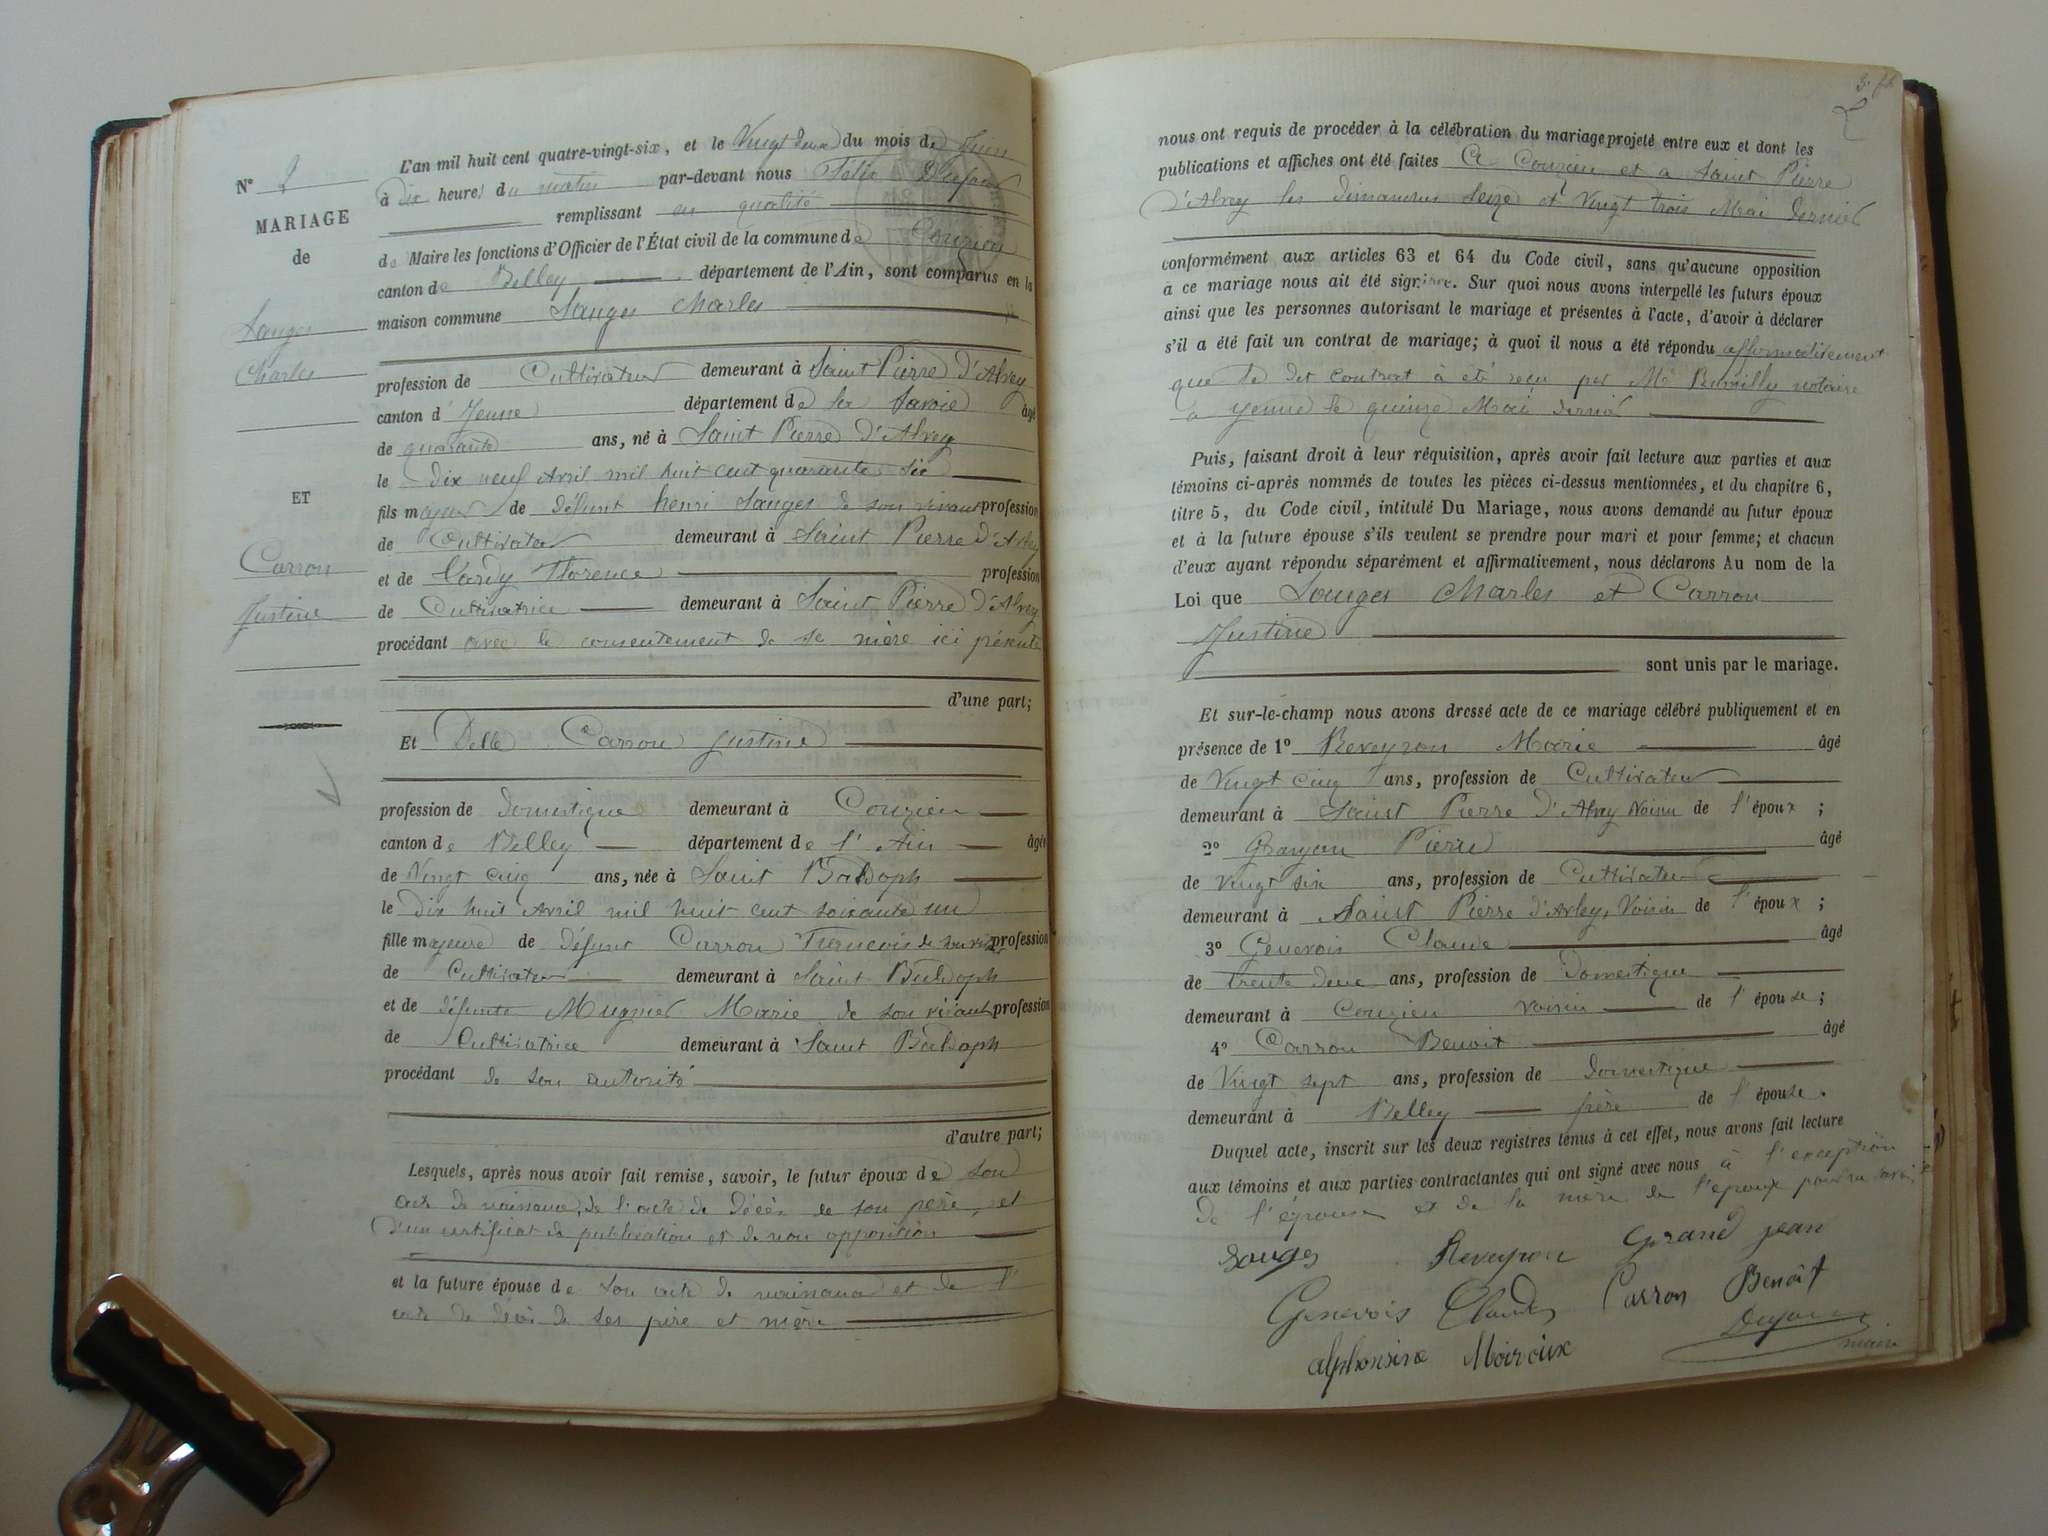 N° 2
MARIAGE
de
Sauges
Charles
ET
Carron
Justine
L'an mil huit cent quatre-vingt-six, et le Vingt deux du mois de Juin
à dix heures du matin par-devant nous Félix Dufour
remplissant en qualité
de Maire les fonctions d'Officier de l'État civil de la commune de Couzieu
canton de Belley département de l'Ain, sont comparus en la
maison commune Sauges Charles
profession de Cultivateur demeurant à Saint Pierre D'Alvey
canton d'Yenne département de la Savoie âgé
de quarante ans, né à Saint Pierre D'Alvey
le dix neuf Avril mil huit cent quarante six
fils majeur de défunt henri Sauges de son vivant profession
de Cultivateur demeurant à Saint Pierre D'Alvey
et de Florence profession
de Cultivatrice demeurant à Saint Pierre D'Alvey
procédant avec le consentement de sa mère ici présente
d'une part;
Et Delle Carron Justine
profession de domestique demeurant à Couzieu
canton de Belley département de l'Ain âgée
de Vingt cinq ans, née à Saint Baldoph
le dix huit Avril mil huit cent soixante un
fille majeure de défunt Carron Francois de son vivant profession
de Cultivateur demeurant à Saint Baldoph
et de défunte Mugnier Marie de son vivant profession
de Cultivatrice demeurant à Saint Baldoph
procédant de son autorité
d'autre part;
Lesquels, après nous avoir fait remise, savoir, le futur époux de son
acte de naissance, de l'acte de décès de son père, et
d'un certificat de publication et de non opposition
et la future épouse de son acte de naissance et de l'
acte de décès de ses père et mère
nous ont requis de procéder à la célébration du mariage projeté entre eux et dont les
publications et affiches ont été faites à Couzieu et a Saint Pierre
D'Alvey les dimanches seize et Vingt trois Mai dernier
conformément aux articles 63 et 64 du Code civil, sans qu'aucune opposition
à ce mariage nous ait été signifiée. Sur quoi nous avons interpellé les futurs époux
ainsi que les personnes autorisant le mariage et présentes à l'acte, d'avoir à déclarer
s'il a été fait un contrat de mariage; à quoi il nous a été répondu affirmativement
que le dit contrat à été reçu par Me Rumilly notaire
a yenne le quinze Mai dernier
Puis, faisant droit à leur réquisition, après avoir fait lecture aux parties et aux
témoins ci-après nommés de toutes les pièces ci-dessus mentionnées, et du chapitre 6,
titre 5, du Code civil, intitulé Du Mariage, nous avons demandé au futur époux
et à la future épouse s'ils veulent se prendre pour mari et pour femme; et chacun
d'eux ayant répondu séparément et affirmativement, nous déclarons Au nom de la
Loi que Sauges Charles et Carron
Justine
sont unis par le mariage.
Et sur-le-champ nous avons dressé acte de ce mariage célébré publiquement et en
présence de 1° Reveyron Marie âgé
de Vingt cinq ans, profession de Cultivateur
demeurant à Saint Pierre D'Alvey Voisin de l'époux;
2° Pierre âgé
de Vingt six ans, profession de Cultivateur
demeurant à Saint Pierre d'Arley, Voisin de l'époux;
3° Genevois Claude âgé
de trente deux ans, profession de Domestique
demeurant à Couzieu voisin de l'épouse;
4° Carron Benoit âgé
de Vingt sept ans, profession de domestique
demeurant à Belley frère de l'épouse.
Duquel acte, inscrit sur les deux registres tenus à cet effet, nous avons fait lecture
aux témoins et aux parties contractantes qui ont signé avec nous à l'exception
de l'épouse et de la mère de l'époux
Sauges Reveyron Grand jean
Genevois Claude Carron Benoit
Dufour
maire
alphonsine Moiroux